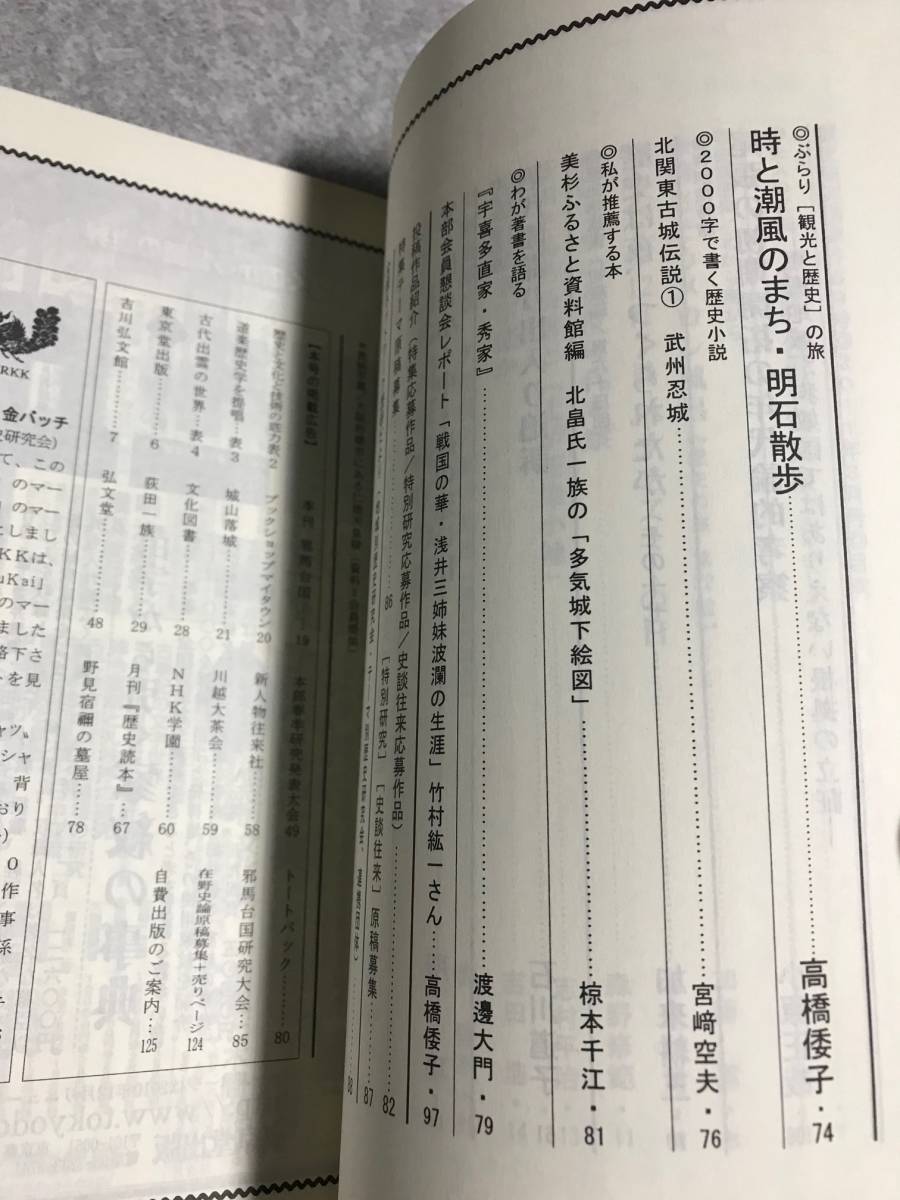 ◎ぶらり［観光と歴史］の旅
時と潮風のまち・明石散歩……高橋倭子・74
◎2000字で書く歴史小説
北関東古城伝説① 武州忍城……宮﨑空夫・76
◎私が推薦する本
美杉ふるさと資料館編 北畠氏一族の「多気城下絵図」……椋本千江・81
◎わが著書を語る
『宇喜多直家・秀家』……渡邊大門・79
本部会員懇談会レポート「戦国の華・浅井三姉妹波瀾の生涯」竹村紘一さん…高橋倭子・97
投稿作品紹介（特集応募作品/特別研究応募作品/史談往来応募作品）……82
特集テーマ原稿募集……86 ［特別研究］［史談往来］原稿募集……87
【本号の掲載広告】
歴史と文化と技術の底力表2
道楽歴史学を提唱…表3
古代出雲の世界…表4
東京堂出版……6
吉川弘文館……7
季刊 邪馬台国…19
ブックショップマイタウン20
城山落城……21
文化図書……28
荻田一族……29
弘文堂……48
本部春季研究発表大会49
新人物往来社……58
川越大茶会……59
NHK学園……60
月刊『歴史読本』……67
野見宿禰の墓屋……78
トートバック……80
邪馬台国研究大会……85
在野史論原稿募集+売りページ124
自費出版のご案内…125
RKK
金バッチ
史研究会）
て、この
のマー
のマー
としまし
KKは、
uKai」
のマー
ました
落下さ
トを見
ャツ〟
シャ
背
おり
O
作
事
係